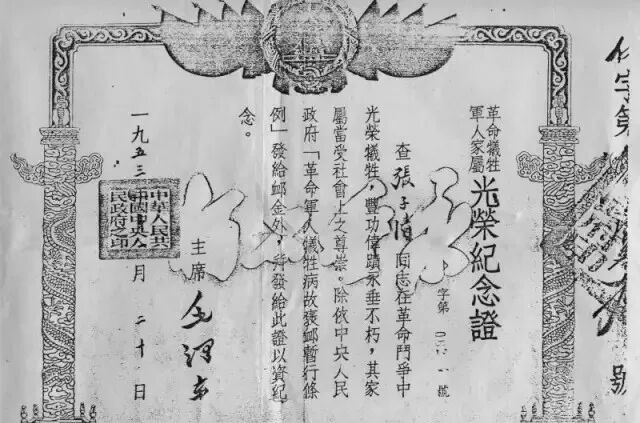 字第 號
革命犧牲
軍人家屬
光榮紀念證
字第 號
查張子清同志在革命鬥爭中
光榮犧牲,豐功偉蹟永垂不朽,其家
屬當受社會上之尊崇。除依中央人民
政府「革命軍人犧牲病故褒卹暫行條
例」發給卹金外,並發給此證以資紀
念。
主席 毛澤東
一九五三 月二十日
中華人民共
和國中央人
民政府之印